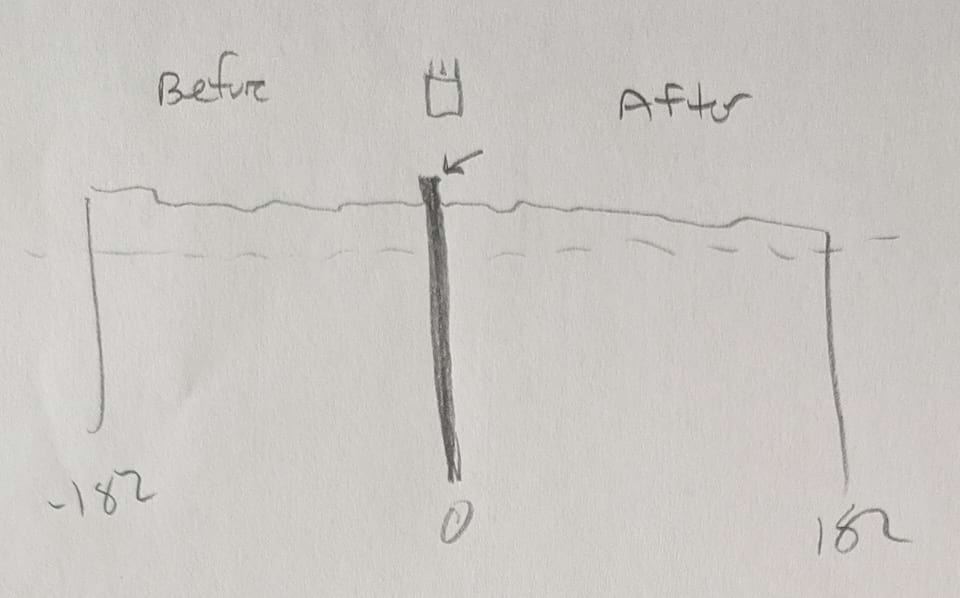 Before After
-182 0 182